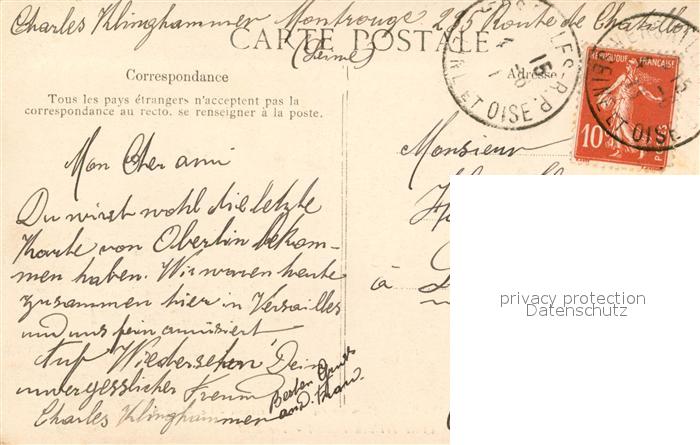 Charles Klinghammer Montrouge 295 Route de Chatillon
(Seine)
CARTE POSTALE
Correspondance
Tous les pays étrangers n'acceptent pas la
correspondance au recto. se renseigner à la poste.
Adresse
15
ET OISE
R.P.
RÉPUBLIQUE FRANÇAISE
10
POSTES
SEINE ET OISE
Monsieur
à
Mon Cher ami
Du wirst wohl die letzte
Karte von Oberlin bekom-
men haben. Wir waren heute
zusammen hier in Versailles
und uns fein amüsiert
Auf Wiedersehen Dein
unvergesslicher Freund
Charles Klinghammer
Besten Gruss
privacy protection
Datenschutz